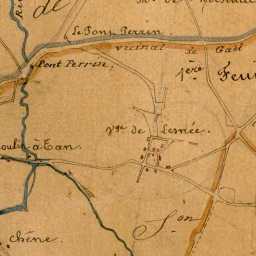 de
Le Pont Perrin
vicinal de Gael
Pont Perrin
1ère Feui
Vge de Lesnée.
à Tan
S.on
Chêne